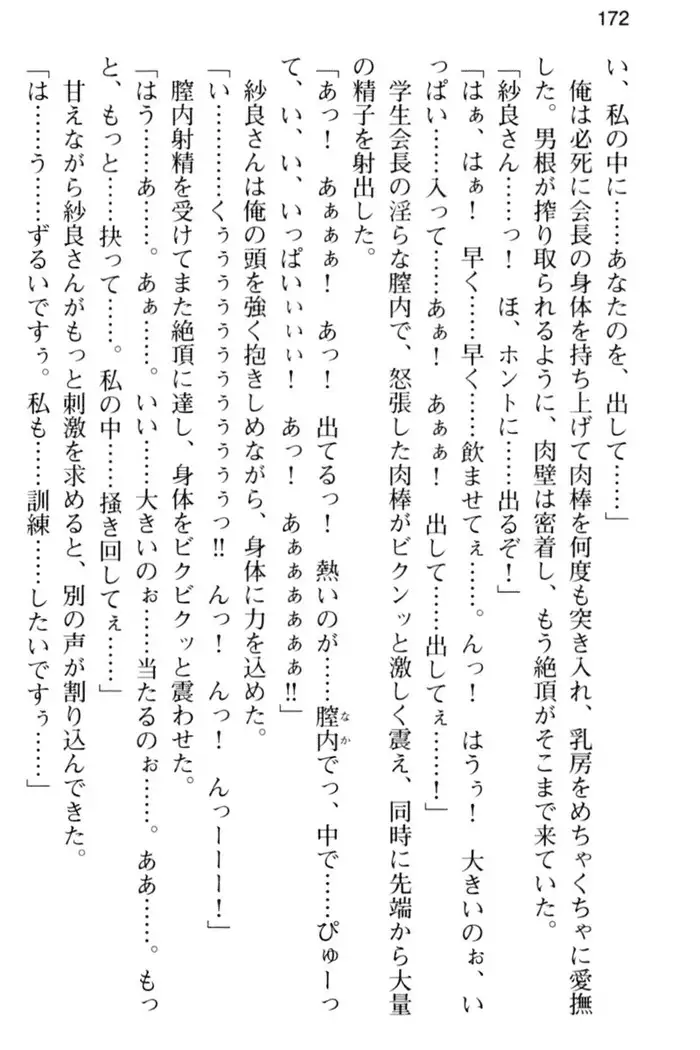 172
い、私の中に……あなたのを、出して……」
　俺は必死に会長の身体を持ち上げて肉棒を何度も突き入れ、乳房をめちゃくちゃに愛撫
した。男根が搾り取られるように、肉壁は密着し、もう絶頂がそこまで来ていた。
「紗良さん……っ！　ほ、ホントに……出るぞ！」
「はぁ、はぁ！　早く……早く……飲ませてぇ……。んっ！　はうぅ！　大きいのぉ、い
っぱい……入って……あぁ！　あぁぁ！　出して……出してぇ……！」
　学生会長の淫らな膣内で、怒張した肉棒がビクンッと激しく震え、同時に先端から大量
の精子を射出した。
「あっ！　あぁぁぁ！　あっ！　出てるっ！　熱いのが……膣内でっ、中で……ぴゅーっ
なか
て、い、い、いっぱいぃぃぃ！　あっ！　あぁぁぁぁぁぁ!!」
　紗良さんは俺の頭を強く抱きしめながら、身体に力を込めた。
「い…………くぅぅぅぅぅぅぅぅぅぅぅっ!!　んっ！　んっ！　んっーーー！」
　膣内射精を受けてまた絶頂に達し、身体をビクビクッと震わせた。
「はう……あ……。あぁ……。いい……大きいのぉ……当たるのぉ……。ああ……。もっ
と、もっと……抉って……。私の中……掻き回してぇ……」
　甘えながら紗良さんがもっと刺激を求めると、別の声が割り込んできた。
「は……う……ずるいですぅ。私も……訓練……したいですぅ……」